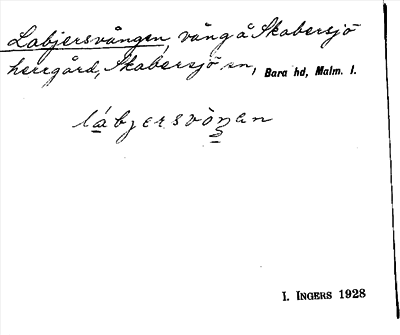 Labjersvången, vång å Skabersjö
herrgård, Skabersjö sn, Bara hd, Malm. l.
lábjersvòŋen
I. INGERS 1928